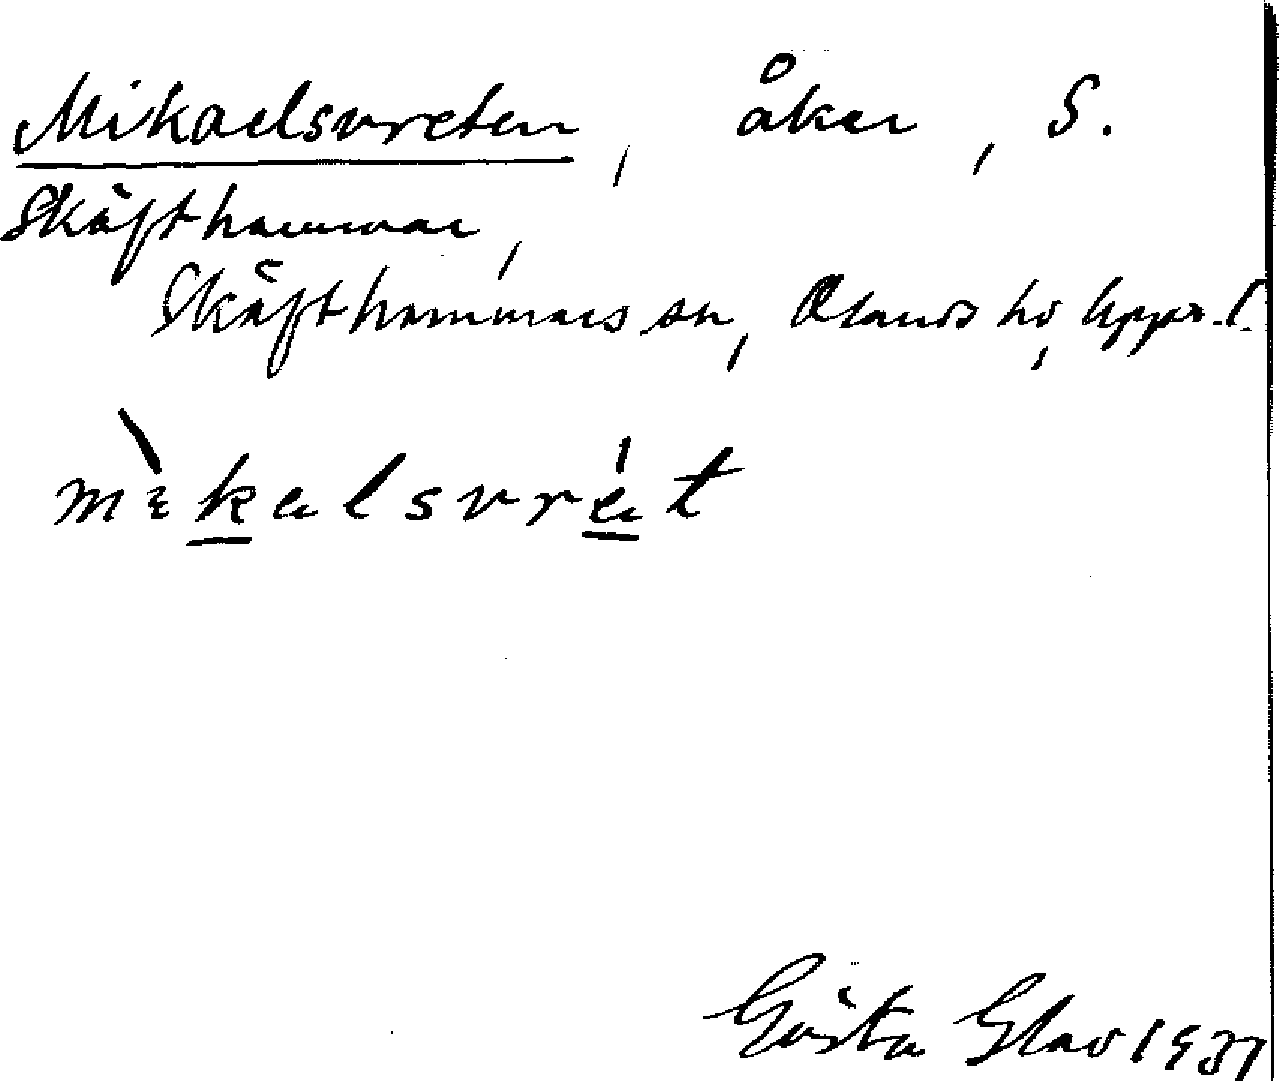 Mikaelsvreten, åker, S.
Skäfthammar,
Skäfthammars sn, Olands hd, Uppr. l.
mikalsvret
Gösta Glav 1937